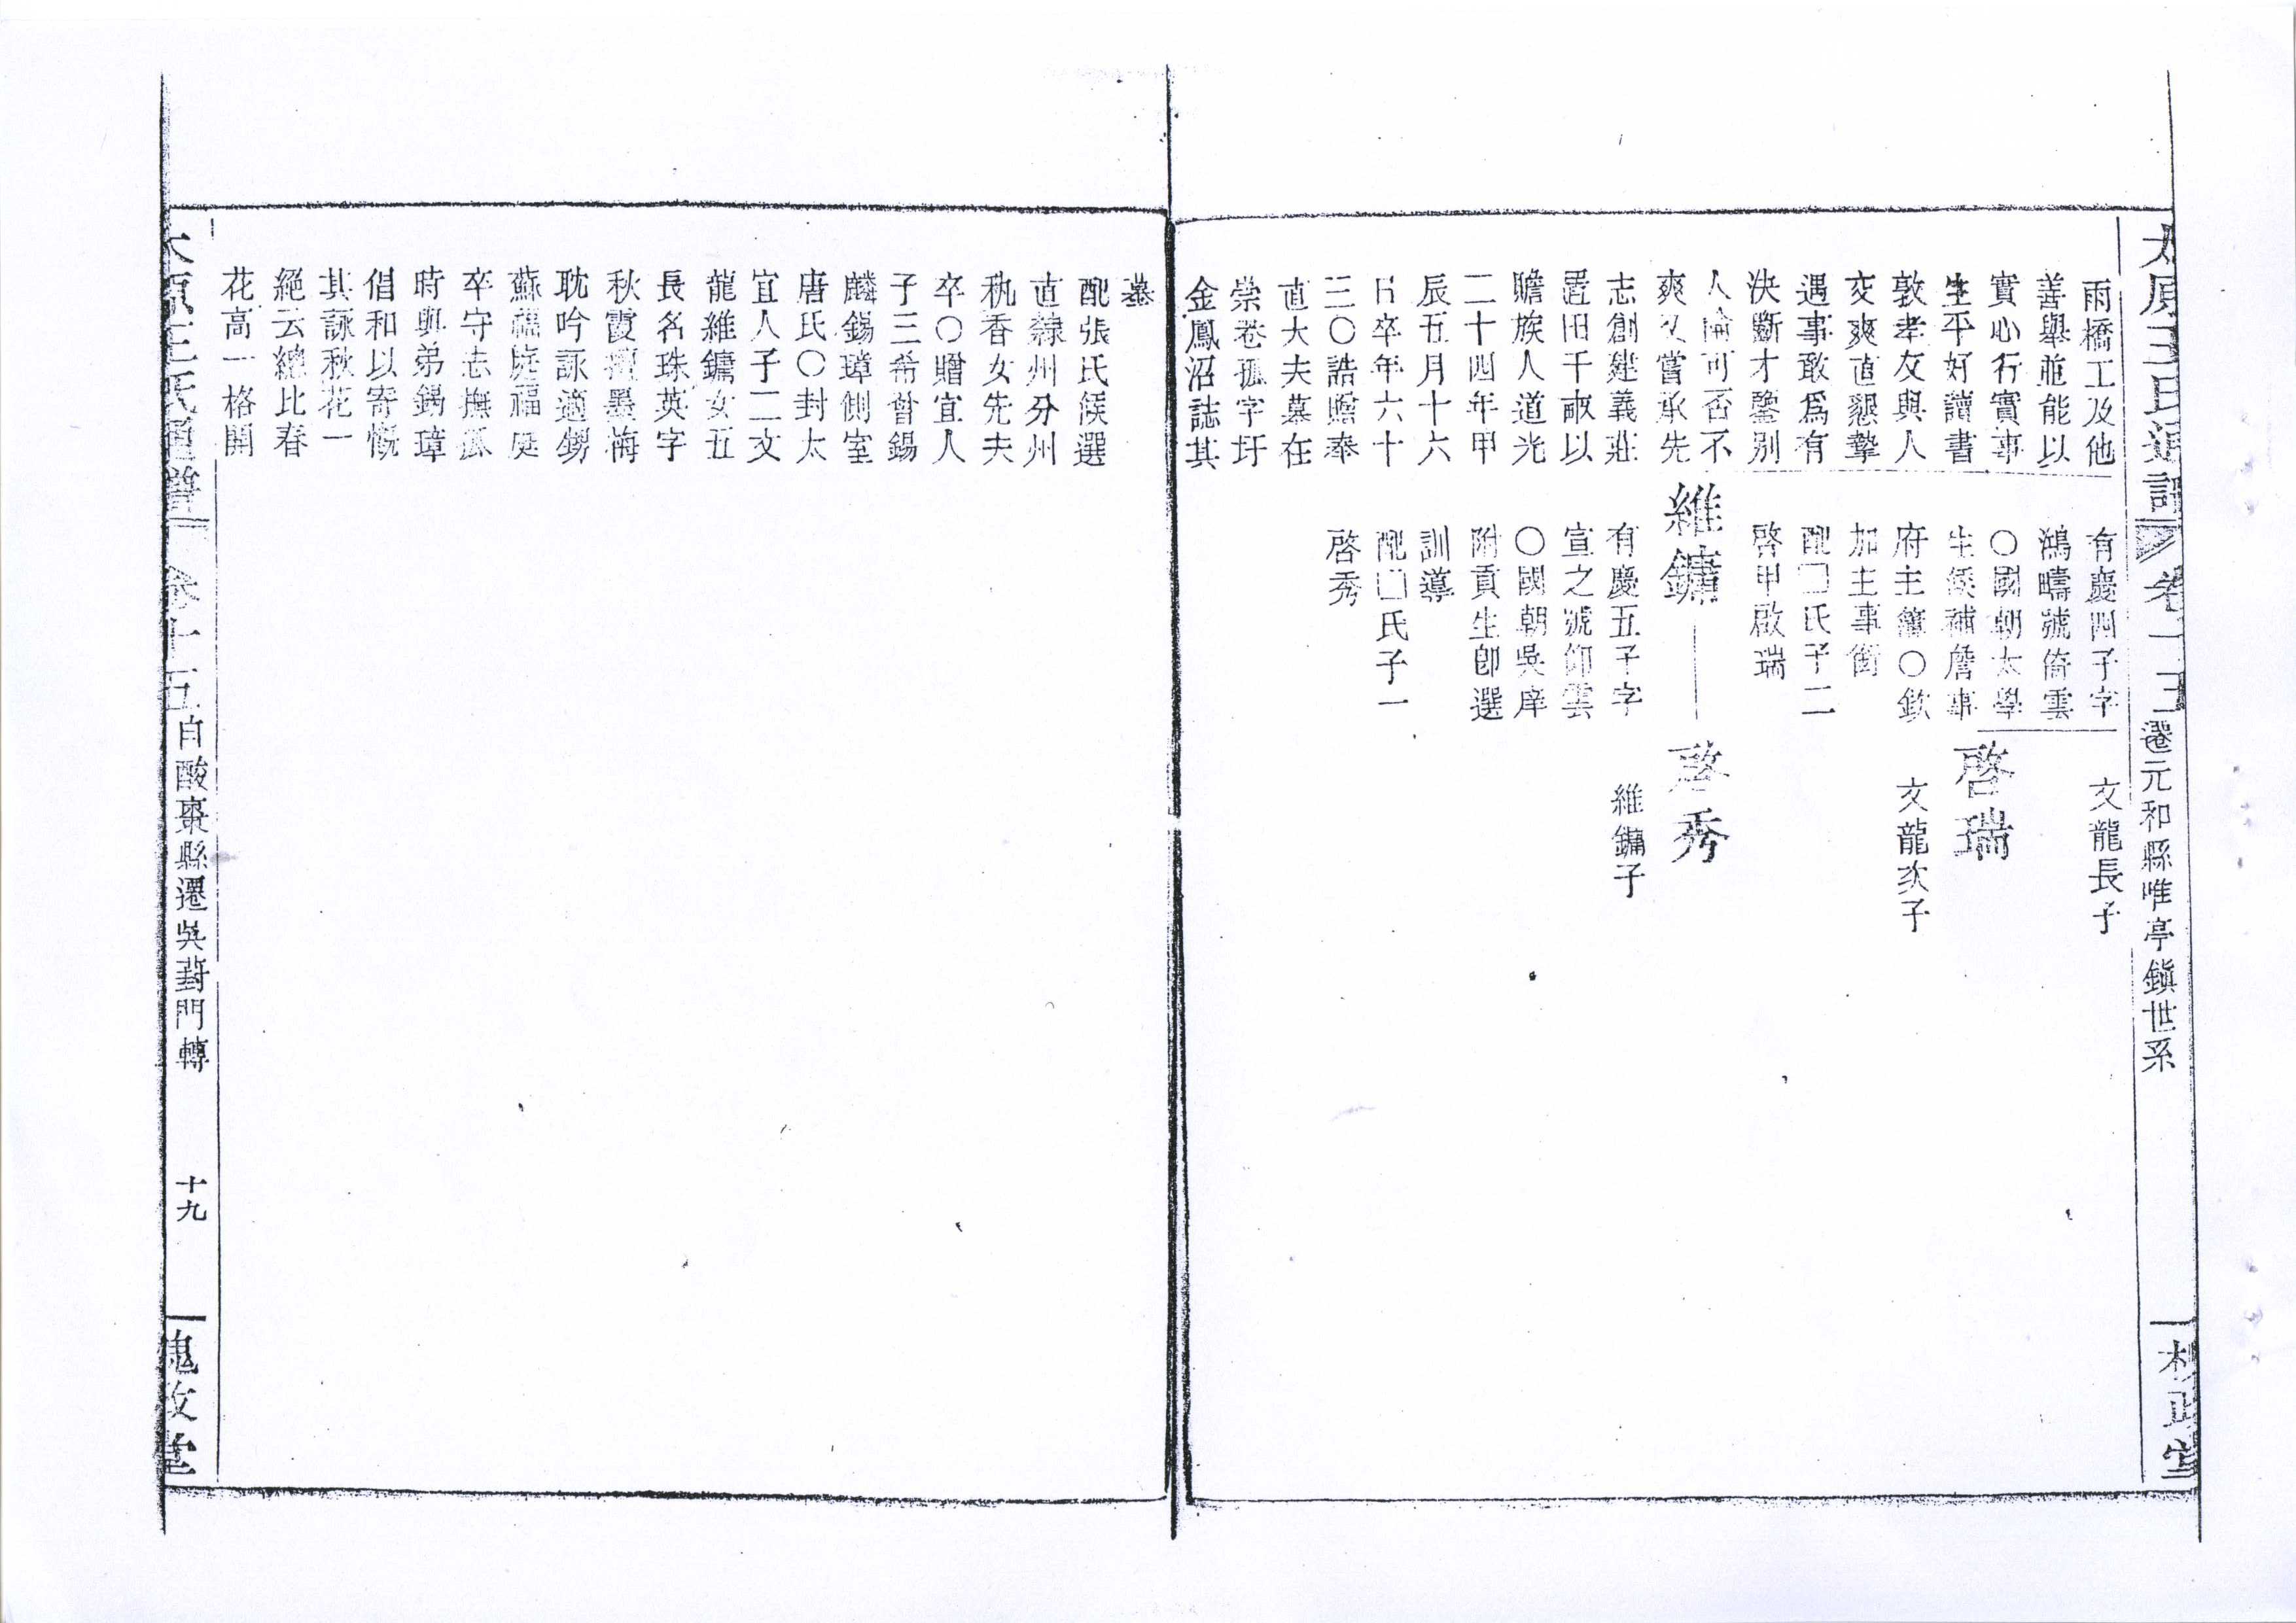 太原王氏通譜
卷十五
遷元和縣唯亭鎮世系
槐政堂
雨橋工及他
善舉並能以
實心行實事
生平好讀書
敦孝友與人
交爽直懇摯
遇事敢爲有
決斷才鑒別
人倫可否不
爽又嘗承先
志創建義莊
置田千畝以
贍族人道光
二十四年甲
辰五月十六
日卒年六十
三〇誥贈奉
直大夫墓在
崇卷孤字圩
金鳳沼誌其
有慶四子字
鴻疇號倚雲
〇國朝太學
生候補詹事
府主簿〇欽
加主事銜
配□氏子二
啓甲啟瑞
維鏞
有慶五子字
宣之號仰雲
〇國朝吳庠
附貢生卽選
訓導
配□氏子一
啓秀
文龍長子
啓瑞
文龍次子
啓秀
維鏞子
墓
配張氏候選
直隸州分州
秇香女先夫
卒〇贈宜人
子三希曾錫
麟錫璋側室
唐氏〇封太
宜人子二文
龍維鏞女五
長名珠英字
秋霞墨梅
耽吟詠適甥
蘇福庭福庭
卒守志撫孤
時與弟錫璋
倡和以寄慨
其詠秋花一
絕云總比春
花高一格開
太原王氏通譜
卷十五
自酸棗縣遷吳葑門轉
十九
槐政堂